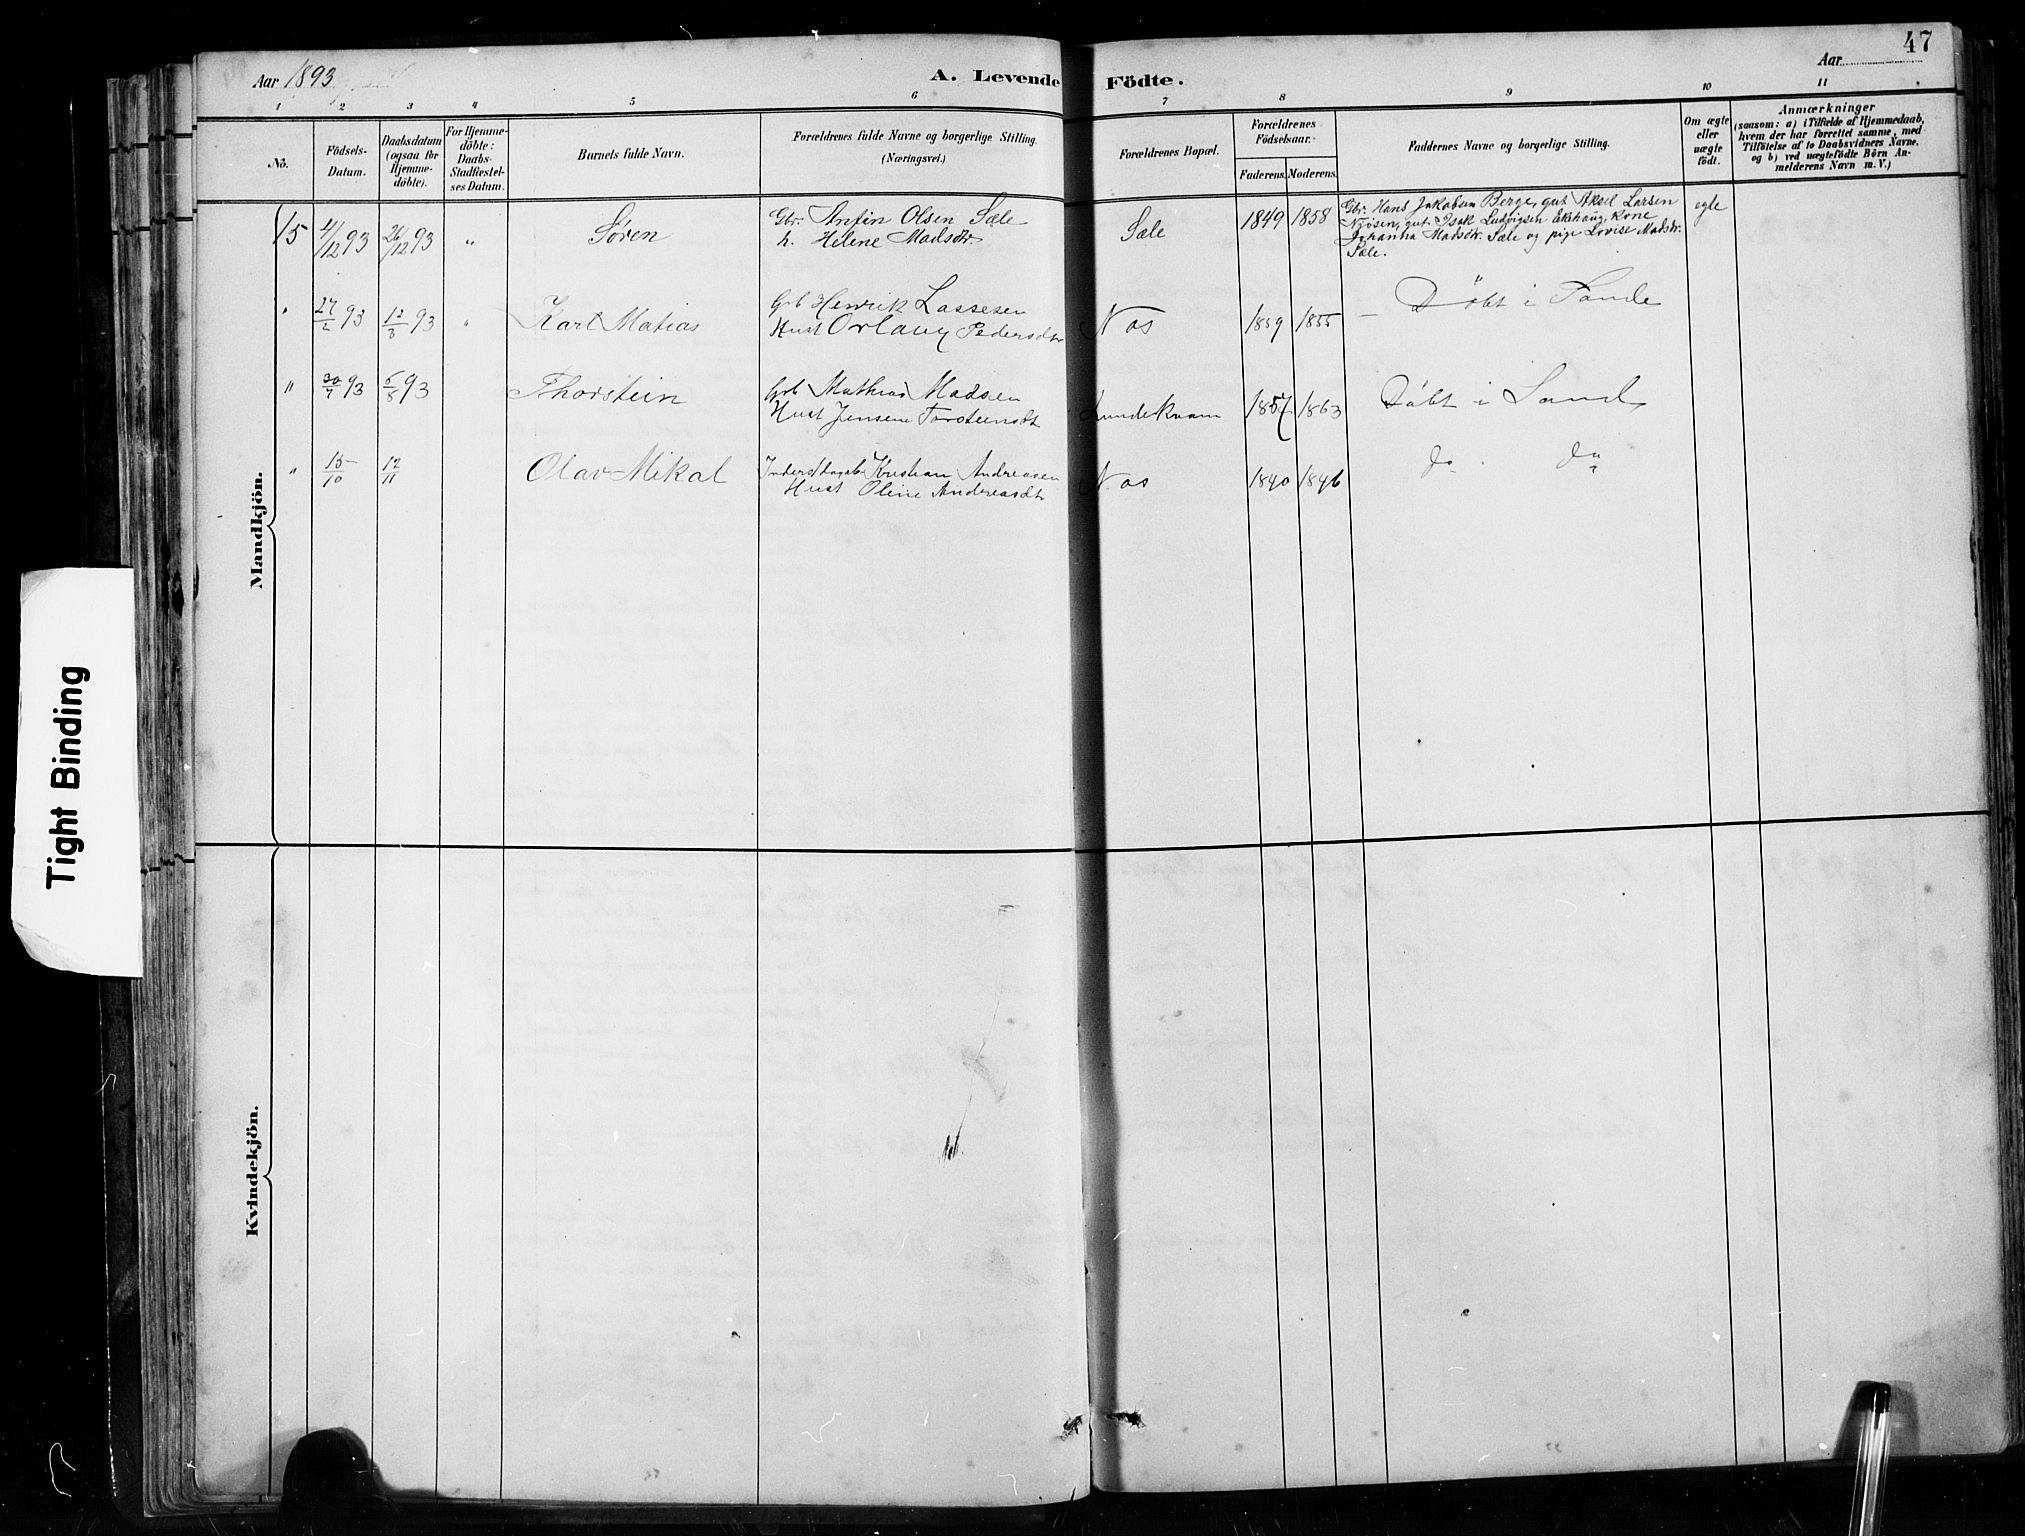 47
Aar 1893
A. Levende Födte.
Aar
1 2 3 4 5 6 7 8 9 10 11
No.
Födsels-
Datum.
Daabsdatum
(ogsaa for
Hjemme-
döbte).
For Hjemme-
döbte:
Daabs-
Stadfæstel-
ses Datum.
Barnets fulde Navn.
Forældrenes fulde Navne og borgerlige Stilling.
(Næringsvei.)
Forældrenes Bopæl.
Forældrenes
Födselsaar.
Faderens. Moderens.
Faddernes Navne og borgerlige Stilling.
Om ægte
eller
uægte
födt.
Anmærkninger
(saasom: a) i Tilfælde af Hjemmedaab,
hvem der har forrettet samme, med
Tilföielse af to Daabsvidners Navne.
og b) ved uægtefödte Börn An-
melderens Navn m. V.)
Mandkjön.
15 4/12 93 26/12 93 " Søren
Gbr. Anfin Olsen Sæle
h. Helene Madsdtr.
Sæle 1849 1858
Gbr. Hans Jakobsen Berge, gut Aksel Larsen
Njøsen, gut Isak Ludvigsen Ekhaug, Kone
Johanna Madsdtr. Sæle og pige Lovise Madsdtr.
Sæle.
egte
" 27/2 93 12/3 93 " Karl Matias
Grb Henrik Lassesen
Hust Orlaug Pedersdtr
Nos 1859 1855 — Døbt i Sande
" 30/7 93 6/8 93 Thorstein
Grb Mathias Madsen
Hust Jensine Torsteinsdt
Lundekvam 1857 1863 Døbt i Sande
" 15/10 12/11 Olav Mikal
Kristian Andreassen
Hust Oline Andreasdt
Nos 1840 1846 do do
Kvindekjön.
Tight Binding